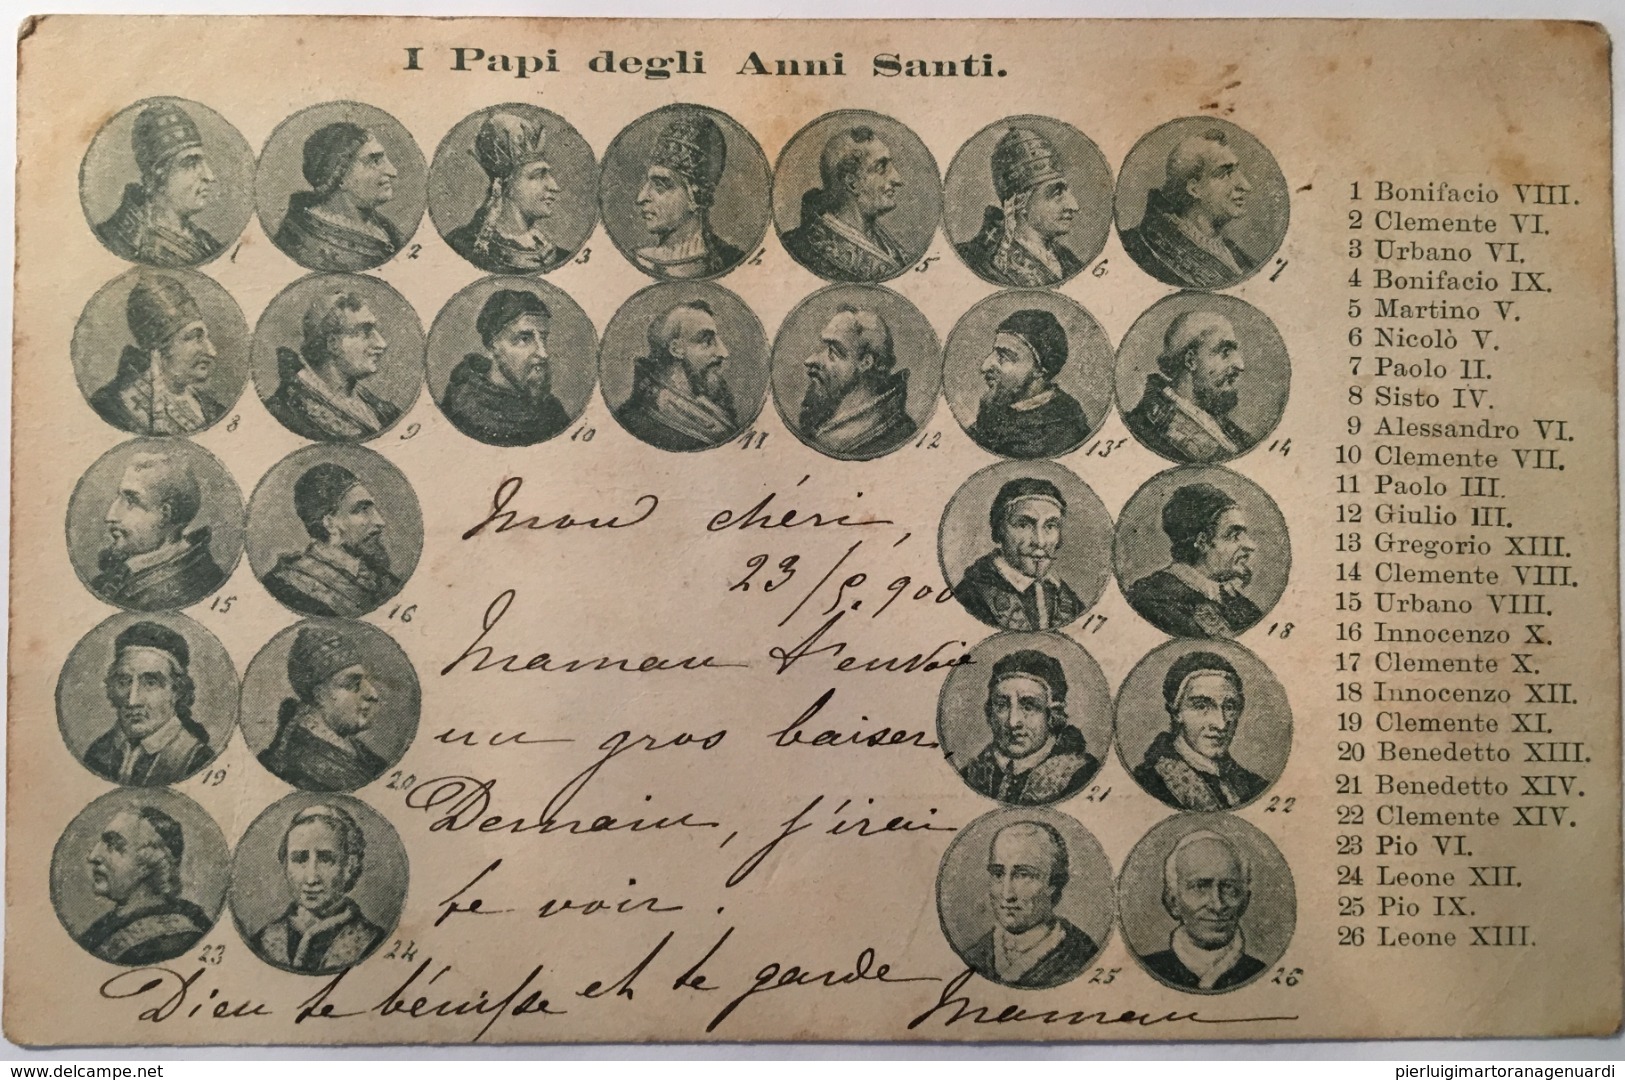 I Papi degli Anni Santi.
1
2
3
4
5
6
7
8
9
10
11
12
13
14
15
16
17
18
19
20
21
22
23
24
25
26
Mon chéri,
23/5.900
Maman t'envoie
un gros baiser,
Demain, j'irai
te voir.
Dieu te bénisse et te garde
Maman
1 Bonifacio VIII.
2 Clemente VI.
3 Urbano VI.
4 Bonifacio IX.
5 Martino V.
6 Nicolò V.
7 Paolo II.
8 Sisto IV.
9 Alessandro VI.
10 Clemente VII.
11 Paolo III.
12 Giulio III.
13 Gregorio XIII.
14 Clemente VIII.
15 Urbano VIII.
16 Innocenzo X.
17 Clemente X.
18 Innocenzo XII.
19 Clemente XI.
20 Benedetto XIII.
21 Benedetto XIV.
22 Clemente XIV.
23 Pio VI.
24 Leone XII.
25 Pio IX.
26 Leone XIII.
delcampe.net
pierluigimartoranagenuardi